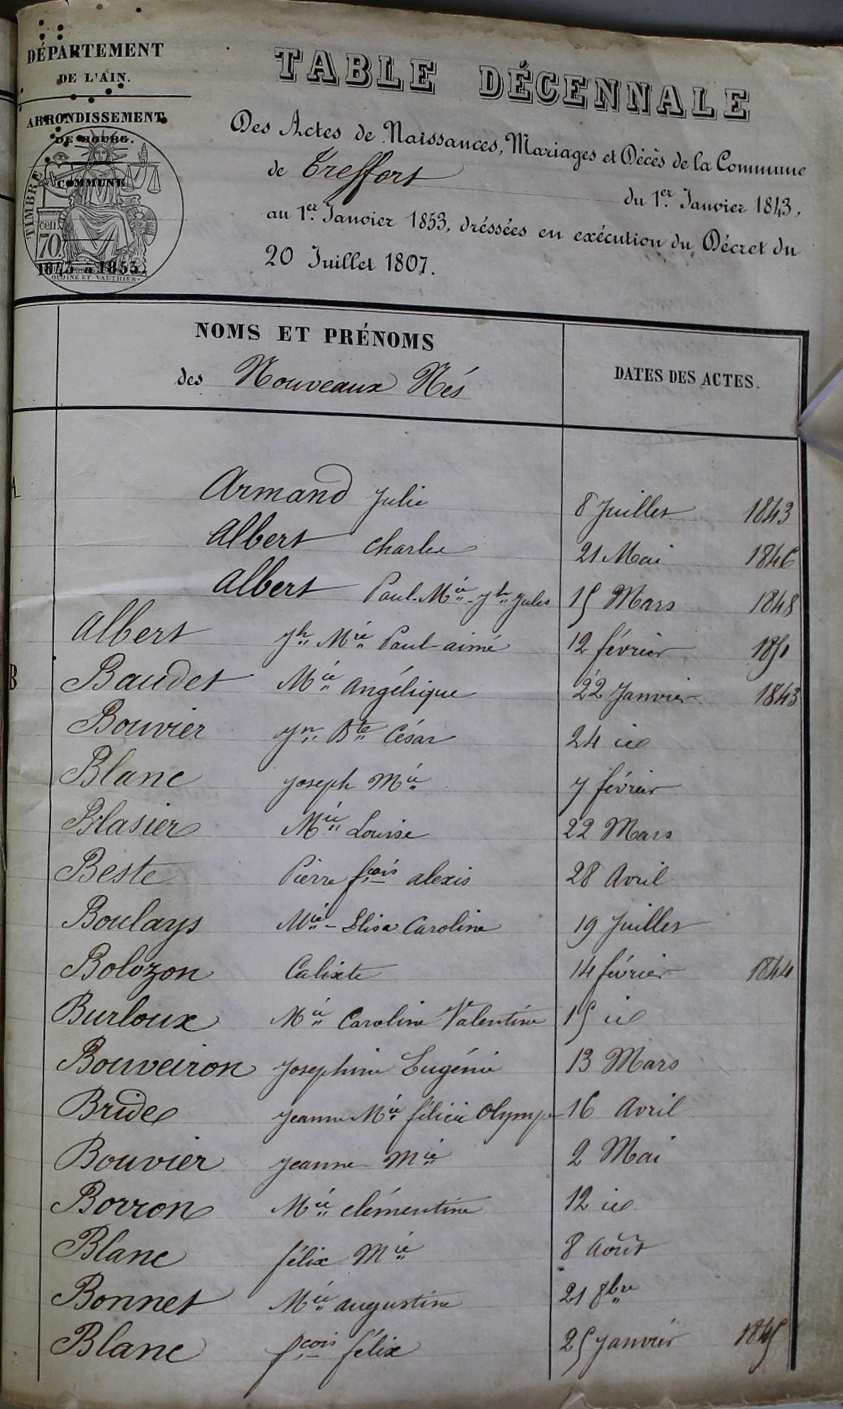 DÉPARTEMENT
DE L'AIN.
ARRONDISSEMENT
DE BOURG.
COMMUNE
TIMBRE
cen.
70
1843 à 1853.
OUDINÉ ET VAUTHIER
TABLE DÉCENNALE
Des Actes de Naissances, Mariages et Décès de la Commune
de Treffort du 1er Janvier 1843,
au 1er Janvier 1853, dréssées en exécution du Décret du
20 Juillet 1807.
NOMS ET PRÉNOMS
des Nouveaux Nés
DATES DES ACTES.
A
Armand Julie 8 Juillet 1843
Albert Charles 21 Mai 1846
Albert Paul-Mie-Jh Jules 15 Mars 1848
Albert Jh Mie Paul aimé 12 février 1851
B Baudet Mie Angélique 22 Janvier 1843
Bouvier Jn Bte César 24 id
Blanc Joseph Mie 7 février
Blasier Mie Louise 22 Mars
Beste Pierre fçois alexis 28 Avril
Boulays Mie-Elisa Caroline 19 Juillet
Bolozon Calixte 14 février 1844
Burloux Mie Caroline Valentine 15 id
Bouveiron Josephine Eugénie 13 Mars
Bride Jeanne Mie félicie Olympe 16 Avril
Bouvier Jeanne Mie 2 Mai
Borron Mie clémentine 12 id
Blanc félix Mie 8 Août
Bonnet Mie augustine 21 8bre
Blanc fçois félix 25 Janvier 1845